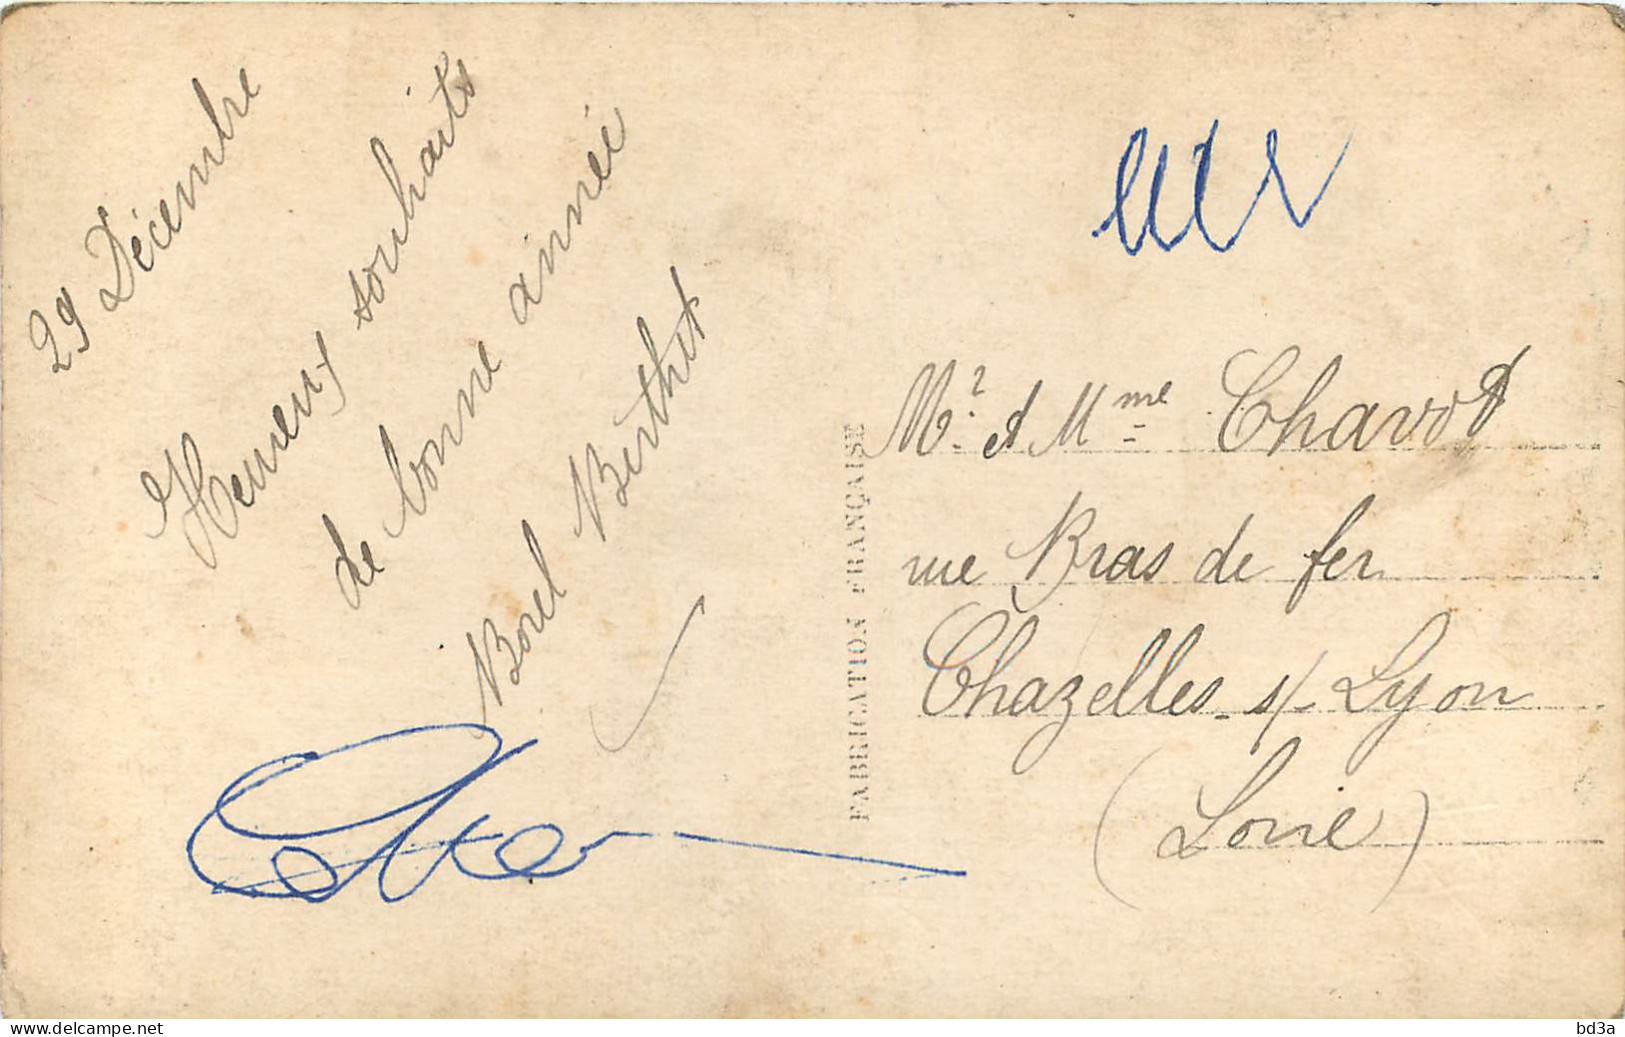 29 Décembre
Heureux souhaits
de bonne année
Borel Berthet
FABRICATION FRANÇAISE
Mr. et Mme Chavot
rue Bras de fer
Chazelles s/ Lyon
(Loire)
www.delcampe.net
bd3a